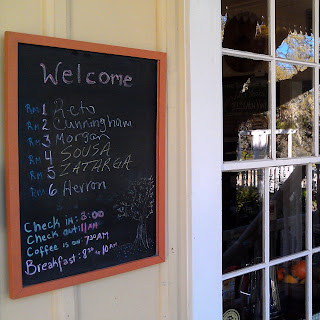 Welcome
Rm 1
Rm 2 Cunningham
Rm 3 Morgan
Rm 4 SOUSA
Rm 5 ZATARGA
Rm 6 Herron
Check in: 3:00
Check out: 11 AM
Coffee is on: 7:30 AM
Breakfast: 8:30 to 10 AM